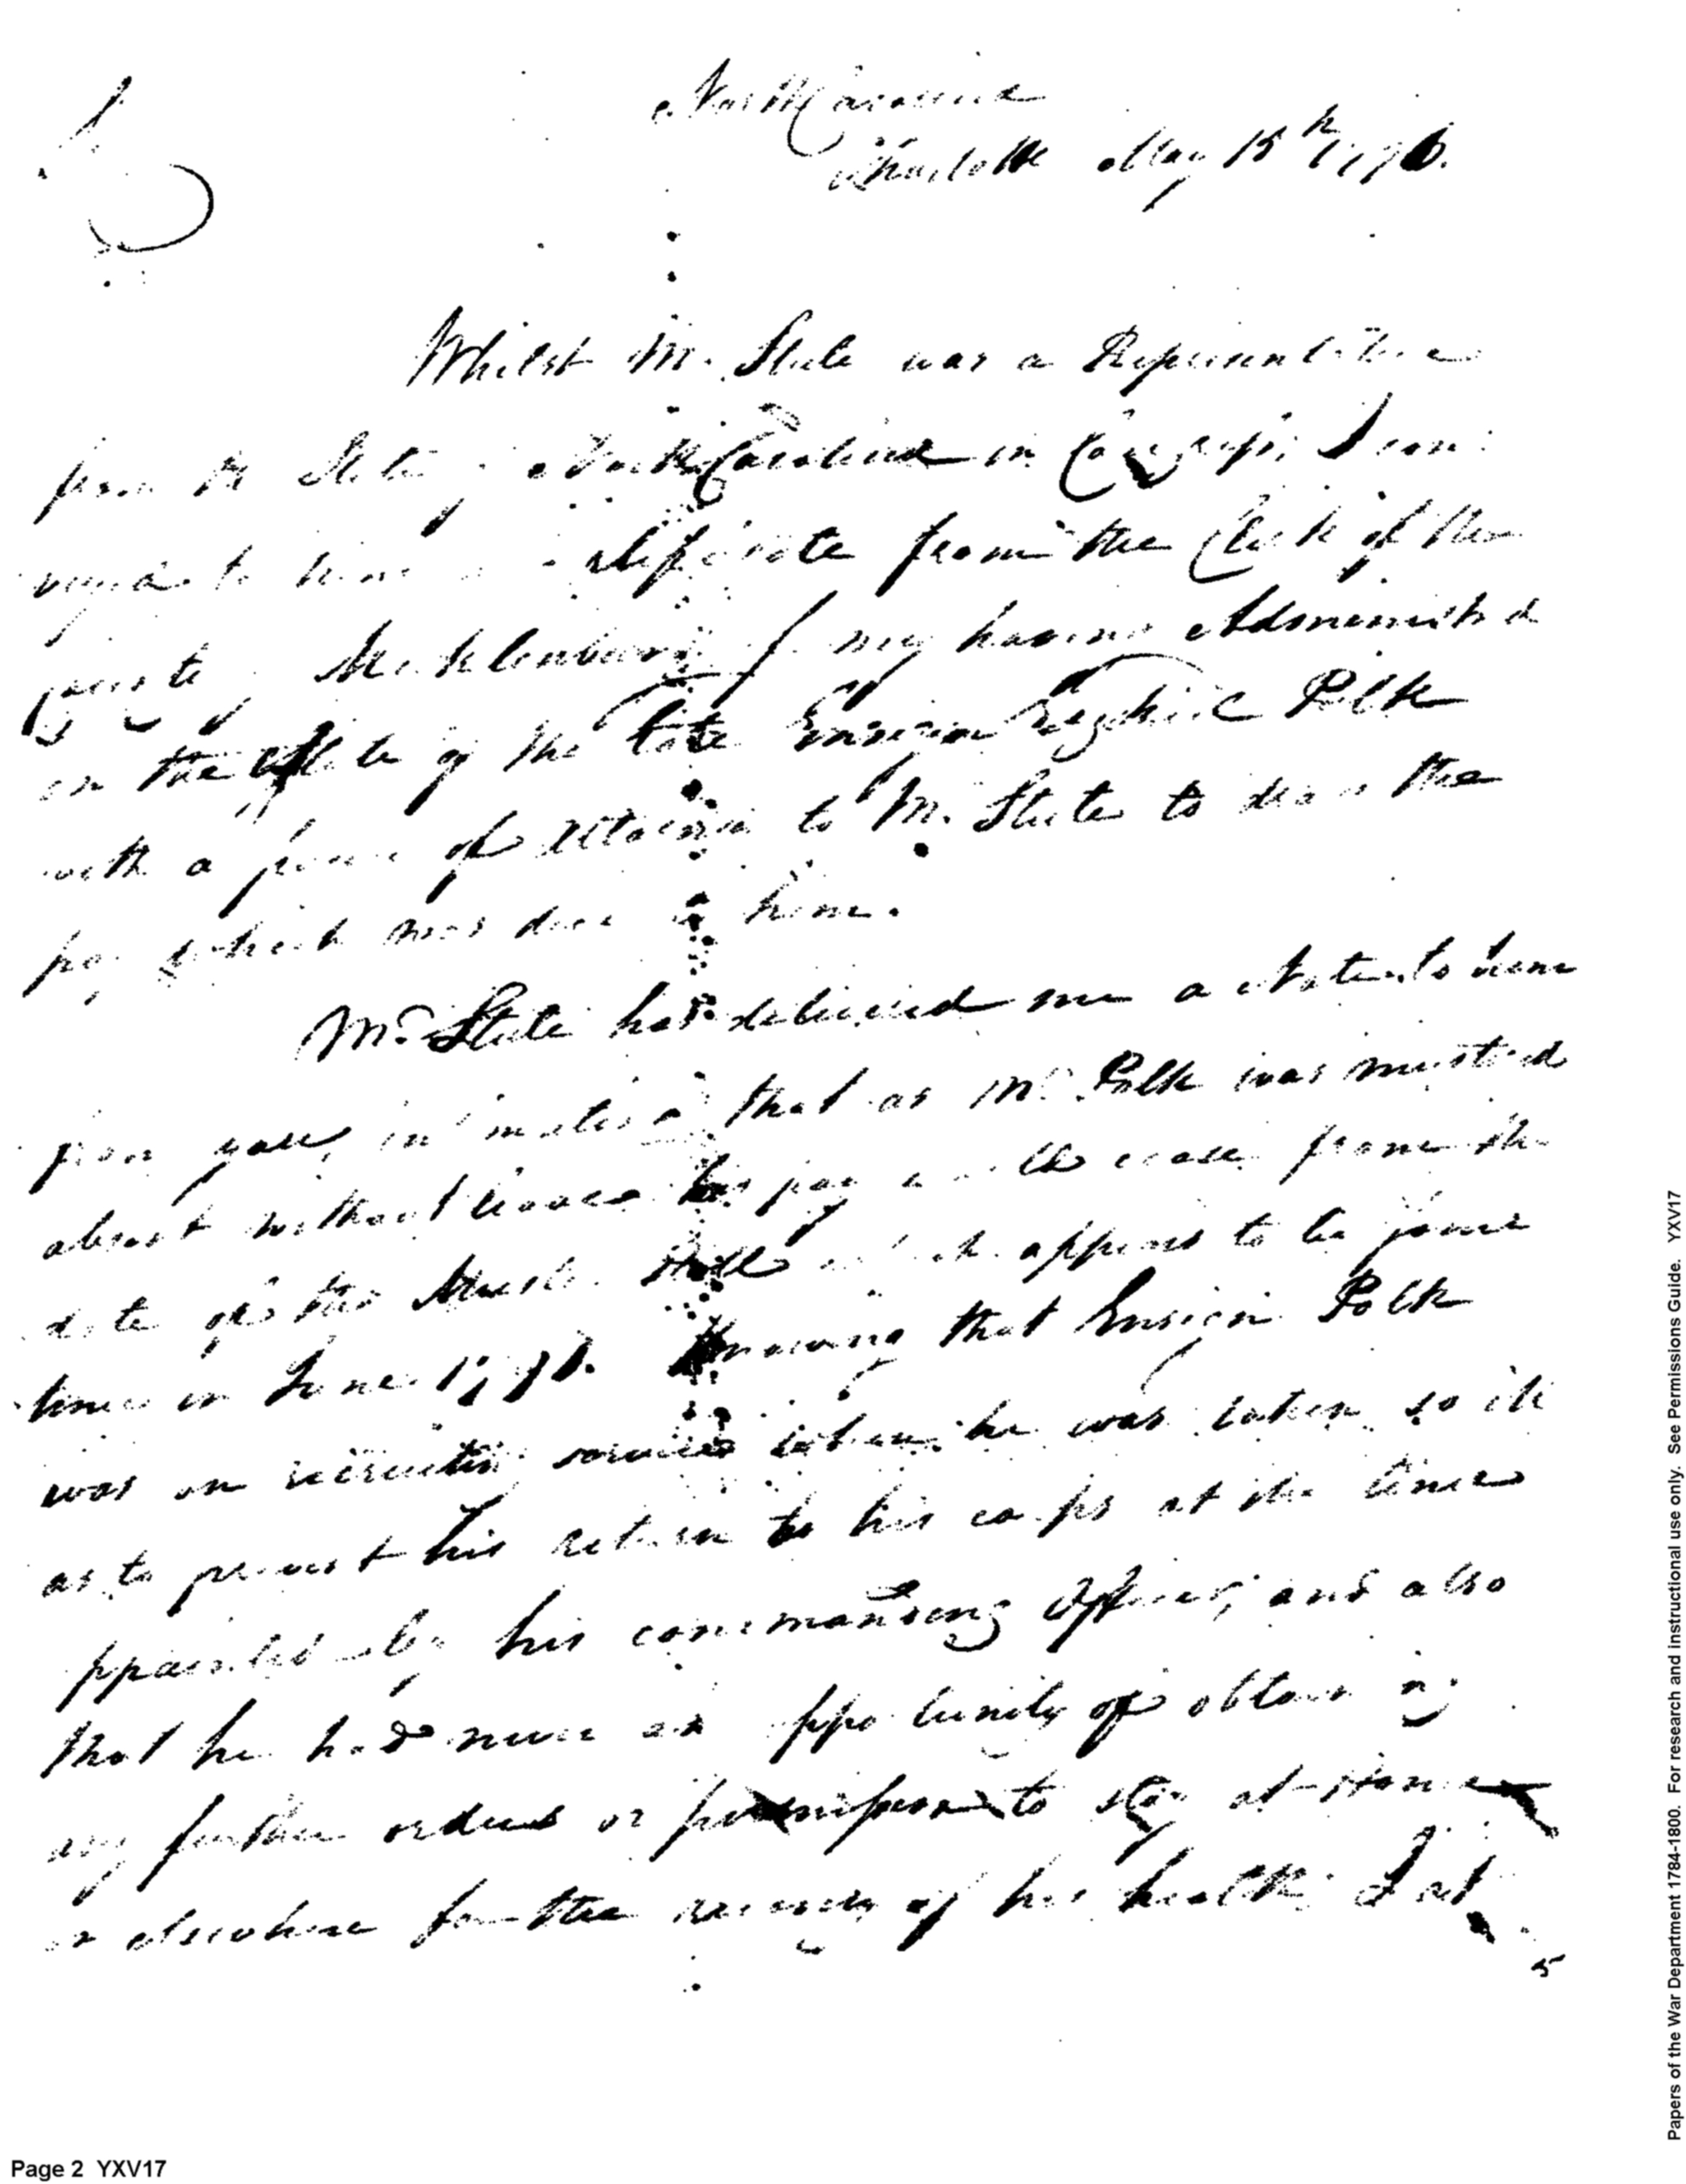 North Carolina
Charlotte May 15th 1796.
Whilst Mr. Steele was a Representative
from the State of North Carolina in Congress, I con-
veyed to him a certificate from the Clerk of the
county of Mecklenburg of my having Administred
on the estate of the late Ensign Ezekiel Polk
with a power of attorney to Mr. Steele to draw the
pay which was due to him.
Mr. Steele has delivered me a Note to him
from you, intimating that as Mr. Polk was mustered
absent without leave his pay would cease from the
date of the Muster Roll which appears to be some
time in June. Knowing that Ensign Polk
was on recruiting service when he was taken so ill
as to prevent his return to his corps at the time
appointed by his commanding Officer, and also
that he had never an oppo tunity of obtaining
any further orders or permission to stay at Home
or elsewhere for the recovery of his health; I at
5
Papers of the War Department 1784-1800. For research and instructional use only. See Permissions Guide. YXV17
Page 2 YXV17